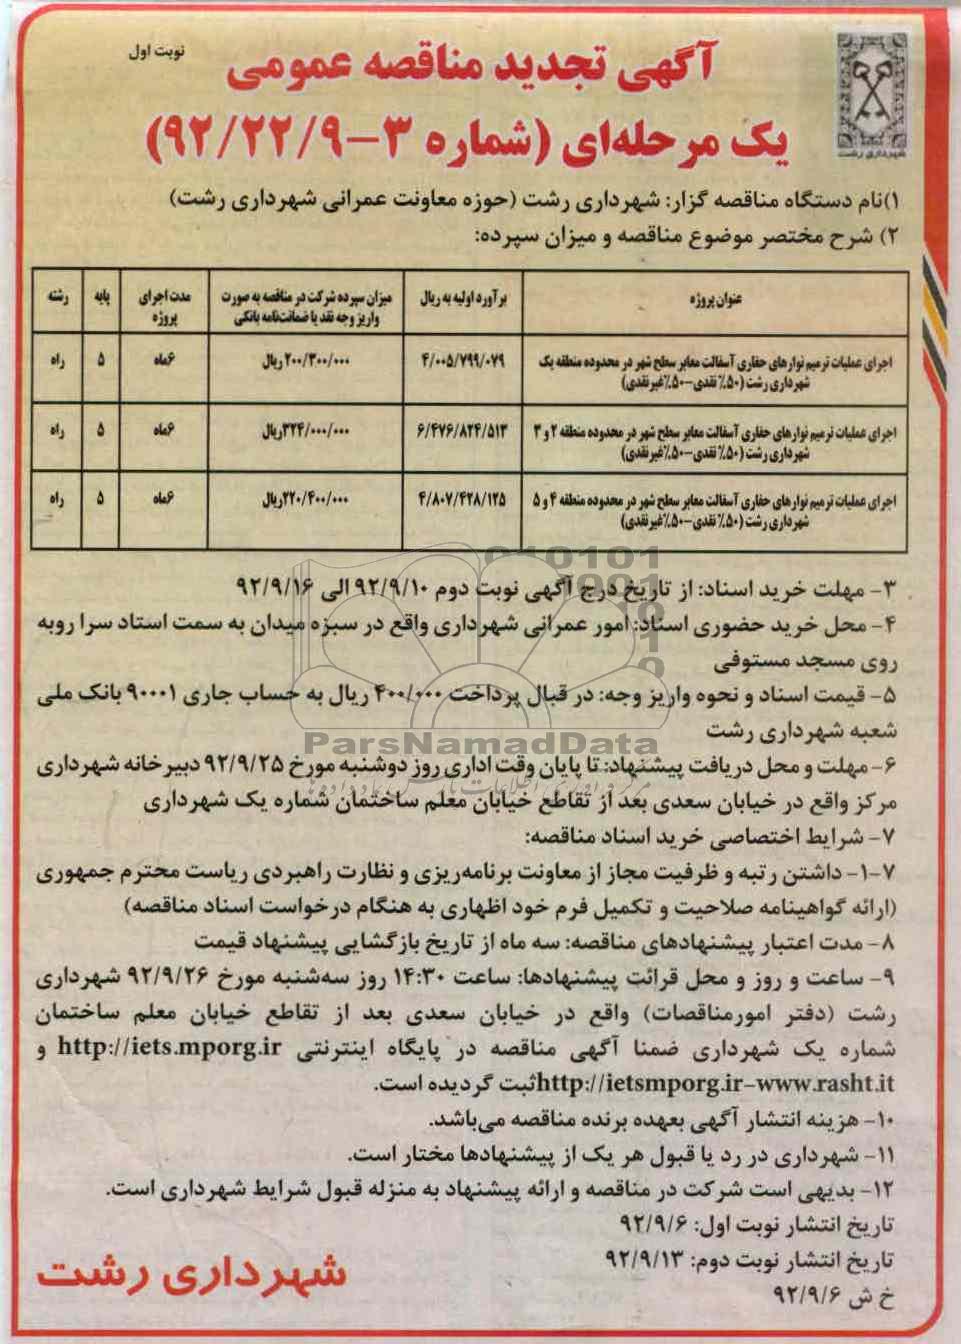 نوبت اول
آگهی تجدید مناقصه عمومی
یک مرحله‌ای (شماره ۳-۹۲/۲۲/۹)
شهرداری رشت
۱)نام دستگاه مناقصه گزار: شهرداری رشت (حوزه معاونت عمرانی شهرداری رشت)
۲) شرح مختصر موضوع مناقصه و میزان سپرده:
عنوان پروژه | برآورد اولیه به ریال | میزان سپرده شرکت در مناقصه به صورت واریز وجه نقد یا ضمانت‌نامه بانکی | مدت اجرای پروژه | پایه | رشته
اجرای عملیات ترمیم نوارهای حفاری آسفالت معابر سطح شهر در محدوده منطقه یک شهرداری رشت (۵۰٪ نقدی-۵۰٪غیرنقدی) | ۴/۰۰۵/۷۹۹/۰۷۹ | ۲۰۰/۳۰۰/۰۰۰ ریال | ۶ماه | ۵ | راه
اجرای عملیات ترمیم نوارهای حفاری آسفالت معابر سطح شهر در محدوده منطقه ۲ و ۳ شهرداری رشت (۵۰٪ نقدی-۵۰٪غیرنقدی) | ۶/۴۷۶/۸۲۴/۵۱۳ | ۳۲۴/۰۰۰/۰۰۰ریال | ۶ماه | ۵ | راه
اجرای عملیات ترمیم نوارهای حفاری آسفالت معابر سطح شهر در محدوده منطقه ۴ و ۵ شهرداری رشت (۵۰٪ نقدی-۵۰٪غیرنقدی) | ۴/۸۰۷/۴۲۸/۱۲۵ | ۲۲۰/۴۰۰/۰۰۰ریال | ۶ماه | ۵ | راه
۳- مهلت خرید اسناد: از تاریخ درج آگهی نوبت دوم ۹۲/۹/۱۰ الی ۹۲/۹/۱۶
۴- محل خرید حضوری اسناد: امور عمرانی شهرداری واقع در سبزه میدان به سمت استاد سرا روبه
روی مسجد مستوفی
۵- قیمت اسناد و نحوه واریز وجه: در قبال پرداخت ۴۰۰/۰۰۰ ریال به حساب جاری ۹۰۰۰۱ بانک ملی
شعبه شهرداری رشت
ParsNamadData
۶- مهلت و محل دریافت پیشنهاد: تا پایان وقت اداری روز دوشنبه مورخ ۹۲/۹/۲۵ دبیرخانه شهرداری
مرکز واقع در خیابان سعدی بعد از تقاطع خیابان معلم ساختمان شماره یک شهرداری
۷- شرایط اختصاصی خرید اسناد مناقصه:
۷-۱- داشتن رتبه و ظرفیت مجاز از معاونت برنامه‌ریزی و نظارت راهبردی ریاست محترم جمهوری
(ارائه گواهینامه صلاحیت و تکمیل فرم خود اظهاری به هنگام درخواست اسناد مناقصه)
۸- مدت اعتبار پیشنهادهای مناقصه: سه ماه از تاریخ بازگشایی پیشنهاد قیمت
۹- ساعت و روز و محل قرائت پیشنهادها: ساعت ۱۴:۳۰ روز سه‌شنبه مورخ ۹۲/۹/۲۶ شهرداری
رشت (دفتر امورمناقصات) واقع در خیابان سعدی بعد از تقاطع خیابان معلم ساختمان
شماره یک شهرداری ضمنا آگهی مناقصه در پایگاه اینترنتی http://iets.mporg.ir و
http://ietsmporg.ir-www.rasht.itثبت گردیده است.
۱۰- هزینه انتشار آگهی بعهده برنده مناقصه می‌باشد.
۱۱- شهرداری در رد یا قبول هر یک از پیشنهادها مختار است.
۱۲- بدیهی است شرکت در مناقصه و ارائه پیشنهاد به منزله قبول شرایط شهرداری است.
تاریخ انتشار نوبت اول: ۹۲/۹/۶
تاریخ انتشار نوبت دوم: ۹۲/۹/۱۳
خ ش ۹۲/۹/۶
شهرداری رشت